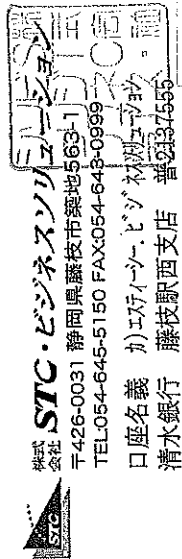 株式会社 STC・ビジネスソリューション
〒426-0031 静岡県藤枝市築地563-1
TEL:054-645-5150 FAX:054-643-0999
口座名義 カ)エスティーシー.ビジネスソリューション
清水銀行 藤枝駅西支店 普2137555
STC